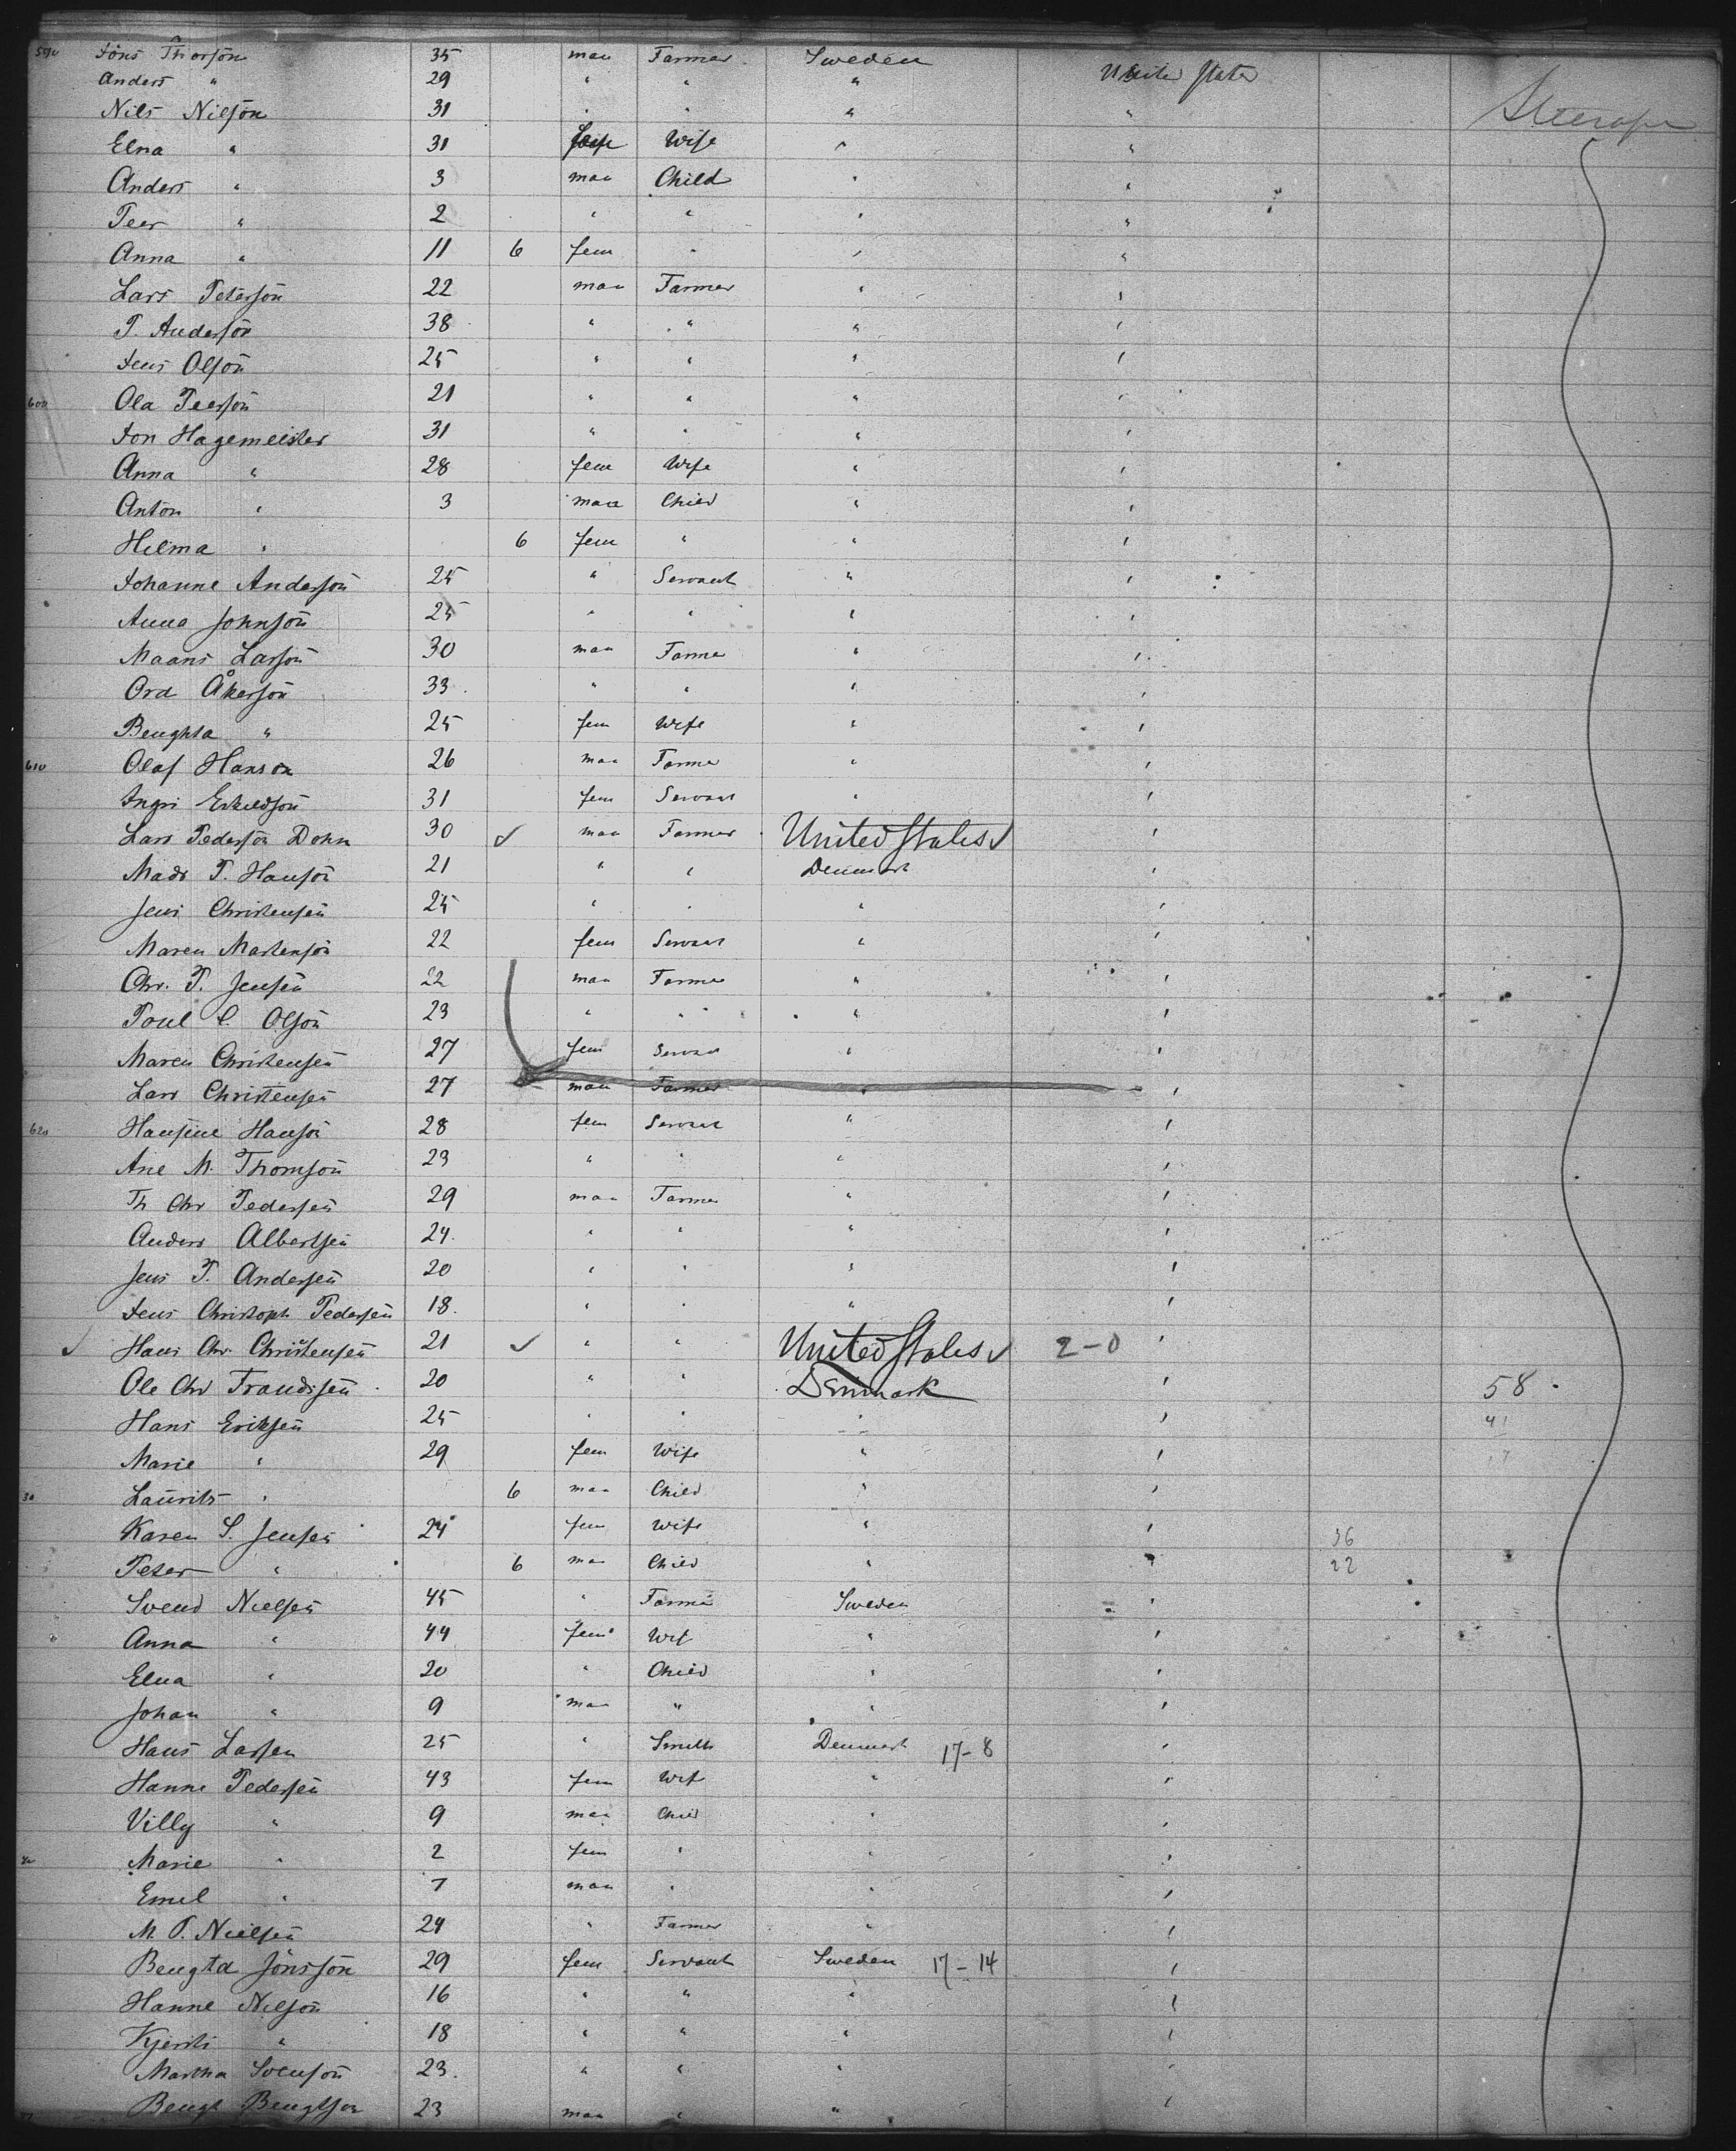 590 Jöns Thorson 35 man Farmer Sweden United States
Anders " 29 " " " "
Nils Nilson 31 " " " " Steerage
Elna " 31 fem Wife " "
Anders " 3 man Child " "
Peer " 2 " " " "
Anna " 11 6 fem " " "
Lars Peterson 22 man Farmer " "
P. Anderson 38 " " " "
Jens Olson 25 " " " "
600 Ola Peerson 21 " " " "
Jon Hagemeister 31 " " " "
Anna " 28 fem Wife " "
Anton " 3 man Child " "
Hilma " 6 fem " " "
Johanne Anderson 25 " Servant " "
Anna Johnson 25 " " " "
Maans Larson 30 man Farmer " "
Ord Åkerson 33 " " " "
Benghta " 25 fem Wife " "
610 Olaf Hanson 26 man Farmer " "
Ingri Eskildson 31 fem Servant " "
Lars Pederson Dohn 30 ✓ man Farmer United States ✓ "
Mads P. Hanson 21 " " Denmark "
Jens Christensen 25 " " " "
Maren Martenson 22 fem Servant " "
Chr. P. Jensen 22 man Farmer " "
Poul C. Olson 23 " " " "
Maren Christensen 27 fem Servant " "
Lars Christensen 27 man Farmer " "
620 Hansine Hanson 28 fem Servant " "
Ane M. Thomson 23 " " " "
Th Chr Pedersen 29 man Farmer " "
Anders Albertsen 24 " " " "
Jens P. Andersen 20 " " " "
Jens Christoph Pedersen 18 " " " "
✓ Hans Chr. Christensen 21 ✓ " " United States ✓ 2-0 "
Ole Chr Frandsen 20 " " Denmark " 58
Hans Eriksen 25 " " " " 41
Marie " 29 fem Wife " " 17
30 Laurits " 6 man Child " "
Karen S. Jensen 24 fem Wife " " 36
Peter " 6 man Child " " 22
Svend Nielsen 45 " Farmer Sweden "
Anna " 44 fem Wife " "
Elna " 20 " Child " "
Johan " 9 man " " "
Hans Larsen 25 " Smith Denmark 17-8 "
Hanne Pedersen 43 fem Wife " "
Villy " 9 man Child " "
40 Marie " 2 fem " " "
Emil " 7 man " " "
M. P. Nielsen 24 " Farmer " "
Bengta Jönsson 29 fem Servant Sweden 17-14 "
Hanne Nilson 16 " " " "
Kjersti " 18 " " " "
Martha Svenson 23 " " " "
Bengt Bengtson 23 man " " "